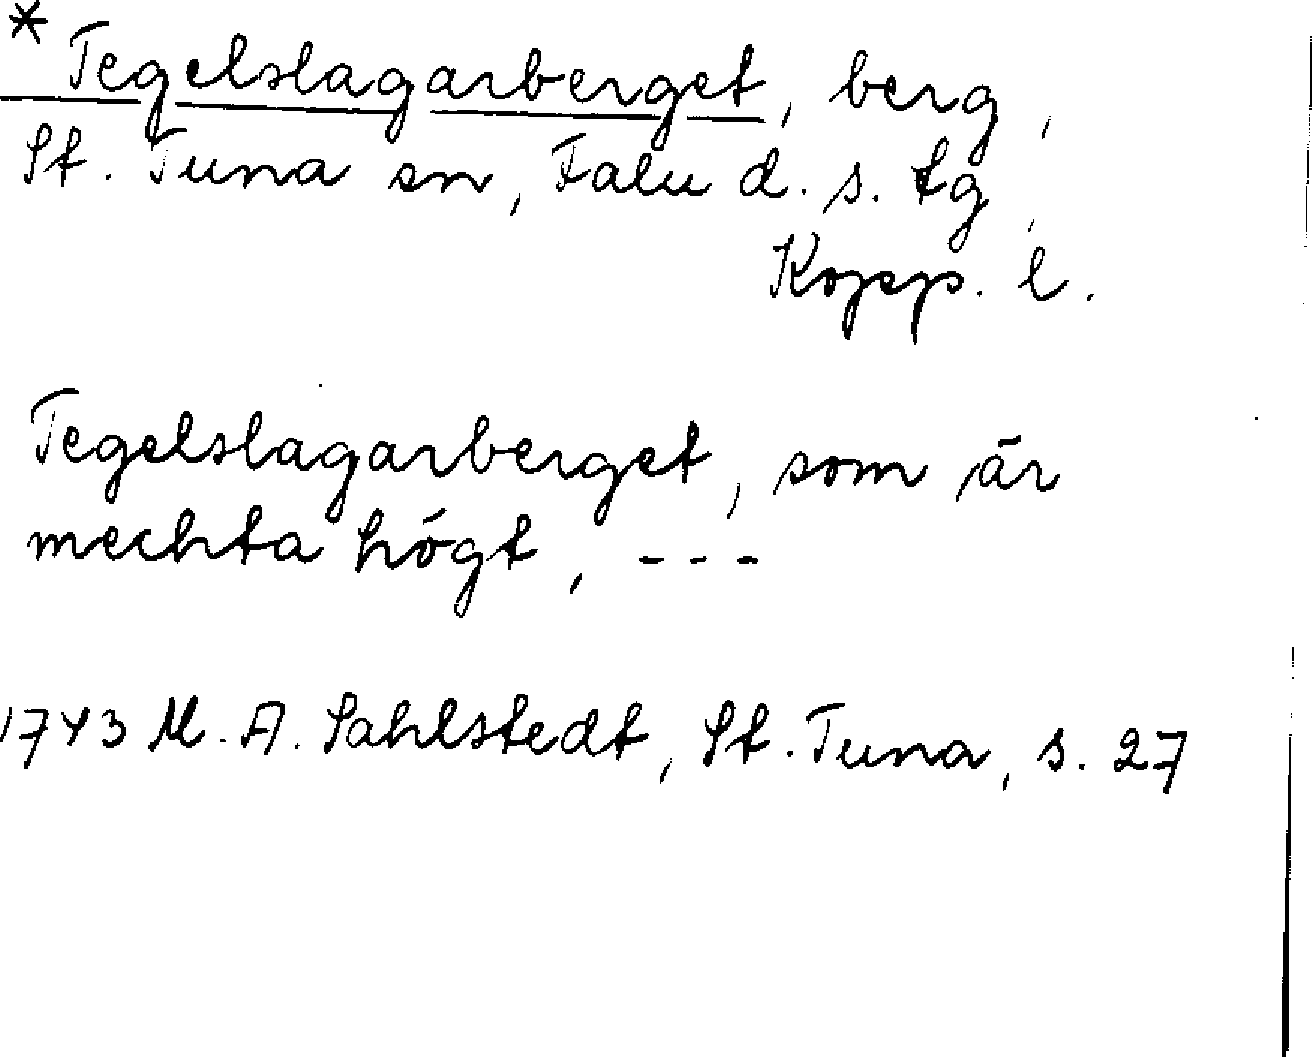 * Tegelslagarberget, berg,
St. Tuna sn, Falu d. s. tg,
Kopp. l.
Tegelslagarberget, som är
mechta högt, ---
1743 M. A. Sahlstedt, St. Tuna, s. 27